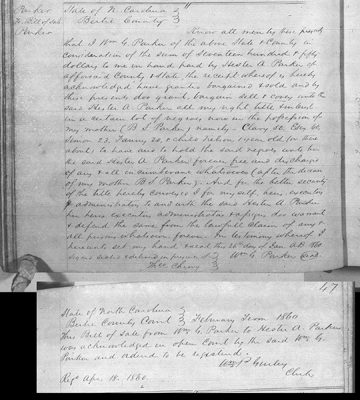 Parker State of N. Carolina
To Bill of Sale Bertie County
Parker Know all men by these presents
that I Wm G. Parker of the above State & County in
consideration of the sum of Seventeen hundred & fifty
dollars to me in hand paid by Hester A. Parker of
aforesaid County & State the receipt whereof is hereby
acknowledged have granted bargained & sold and by
these presents do grant bargain sell & convey unto the
said Hester A. Parker all my right title & interest
in a certain lot of negroes now in the possession of
my mother (B. S. Parker) namely -
23, Fanny 20, & child 1 year old (or there
about) to have and to hold the said negroes unto her
the said Hester A. Parker forever free and discharged
of any & all encumbrance whatsoever (after the decease
of my mother B S Parker). And for the better security
of the title hereby conveyed I for my self, heirs, executors
& administrators to and with the said Hester A. Parker
her heirs executors administrators & assigns do warrant
& defend the same from the lawful claim of any &
all persons whatsoever forever. In testimony whereof I
hereunto set my hand & seal this 26th day of Jan A.D. 1860
Signed sealed & delivered in presence of Wm G Parker Seal
Cherry
47
State of North Carolina
Bertie County Court February Term 1860
This Bill of Sale from Wm G. Parker to Hester A. Parker
was acknowledged in open Court by the said Wm G.
Parker and ordered to be registered.
Wm P Gurley
Clerk
Regd Apr. 18. 1860.